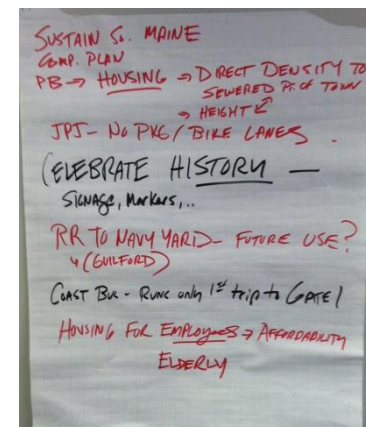 SUSTAIN So. MAINE
COMP. PLAN
PB → HOUSING → DIRECT DENSITY TO
SEWERED Pt. of TOWN
→ HEIGHT
JPJ - No PKG / BIKE LANES
CELEBRATE HISTORY —
SIGNAGE, MARKERS,..
RR TO NAVY YARD - FUTURE USE?
↳ (GUILFORD)
COAST BUS - RUNS only 1st trip to GATE 1
HOUSING FOR EMPLOYEES → AFFORDABILITY
ELDERLY